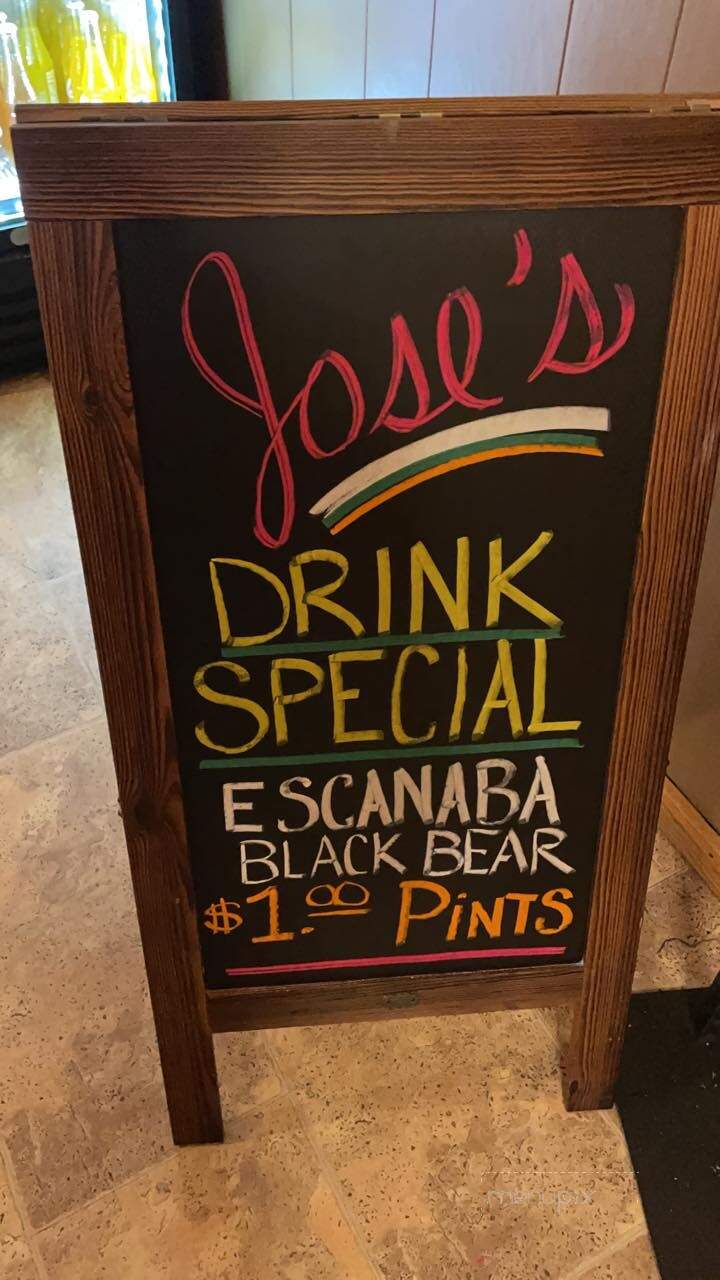 Jose's
DRINK
SPECIAL
ESCANABA
BLACK BEAR
$1.00 PiNTS
menupix